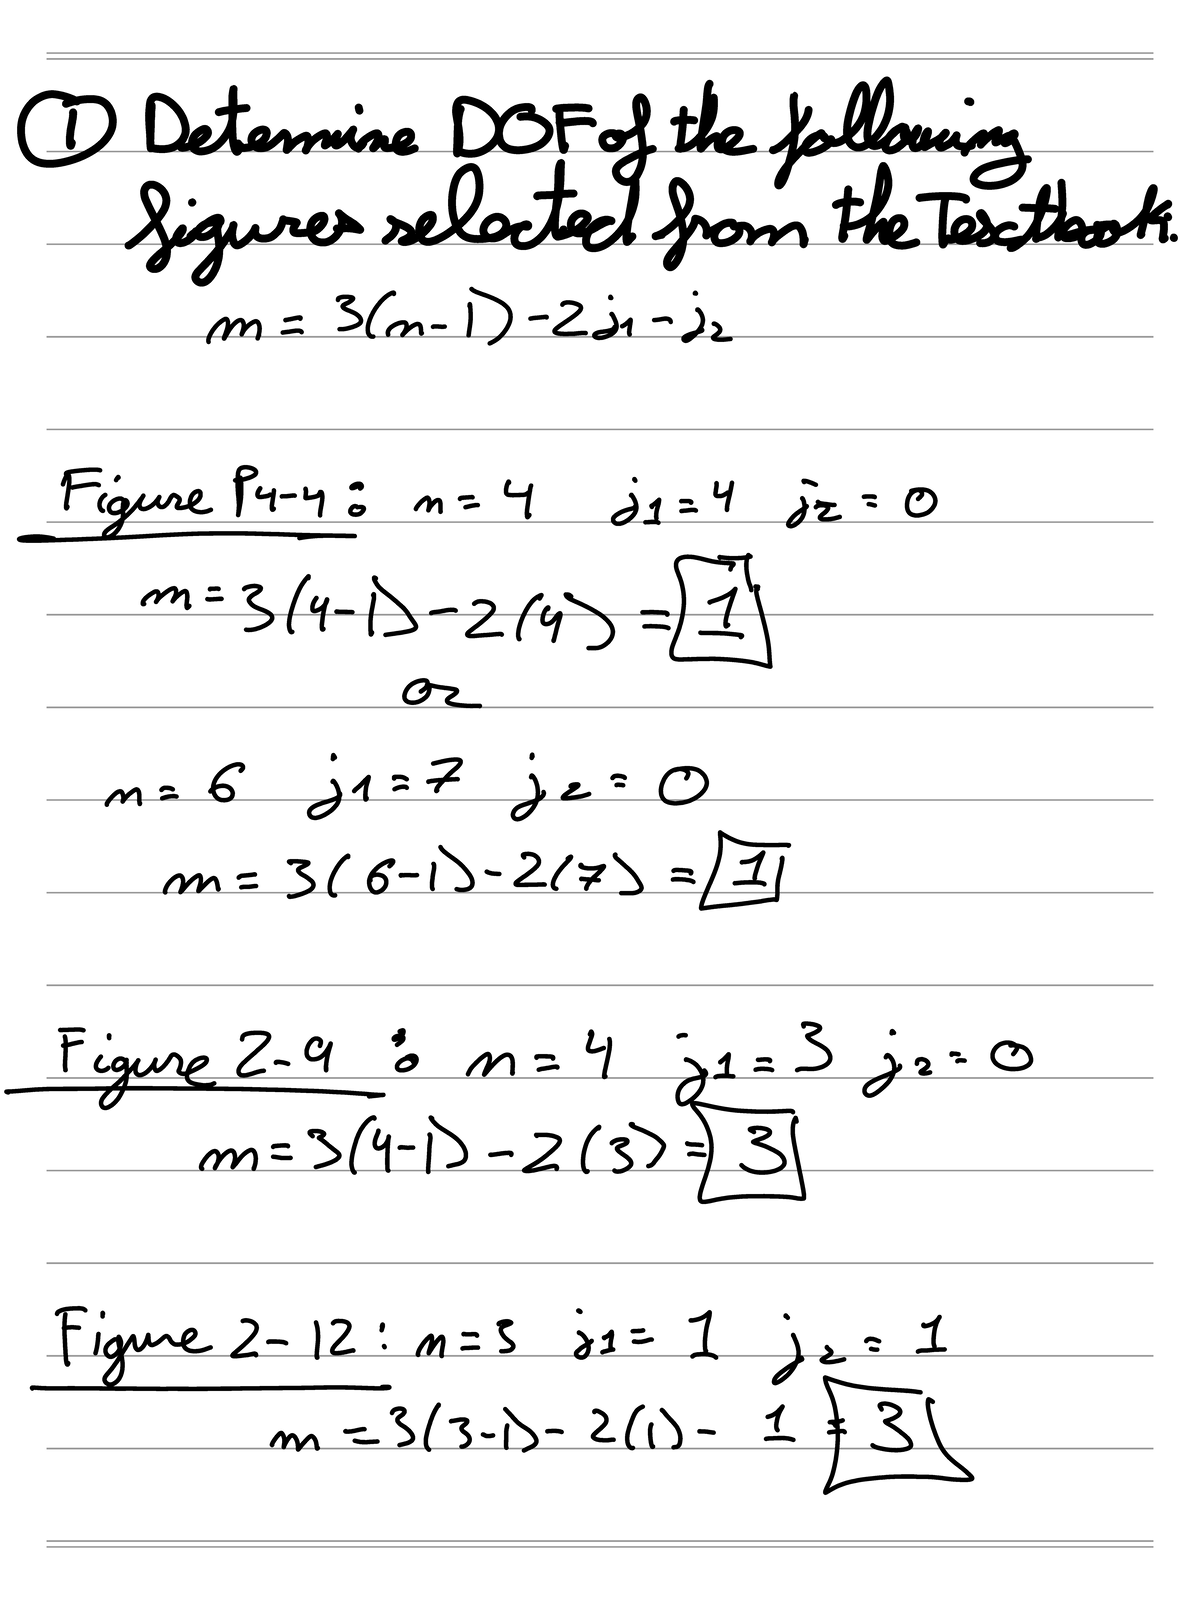 ① Determine DOF of the following
figures selected from the Textbook.
m = 3(n-1) - 2j1 - j2
Figure P4-4: n = 4 j1 = 4 j2 = 0
m = 3(4-1) - 2(4) = 1
or
n = 6 j1 = 7 j2 = 0
m = 3(6-1) - 2(7) = 1
Figure 2-9: n = 4 j1 = 3 j2 = 0
m = 3(4-1) - 2(3) = 3
Figure 2-12: n = 3 j1 = 1 j2 = 1
m = 3(3-1) - 2(1) - 1 = 3